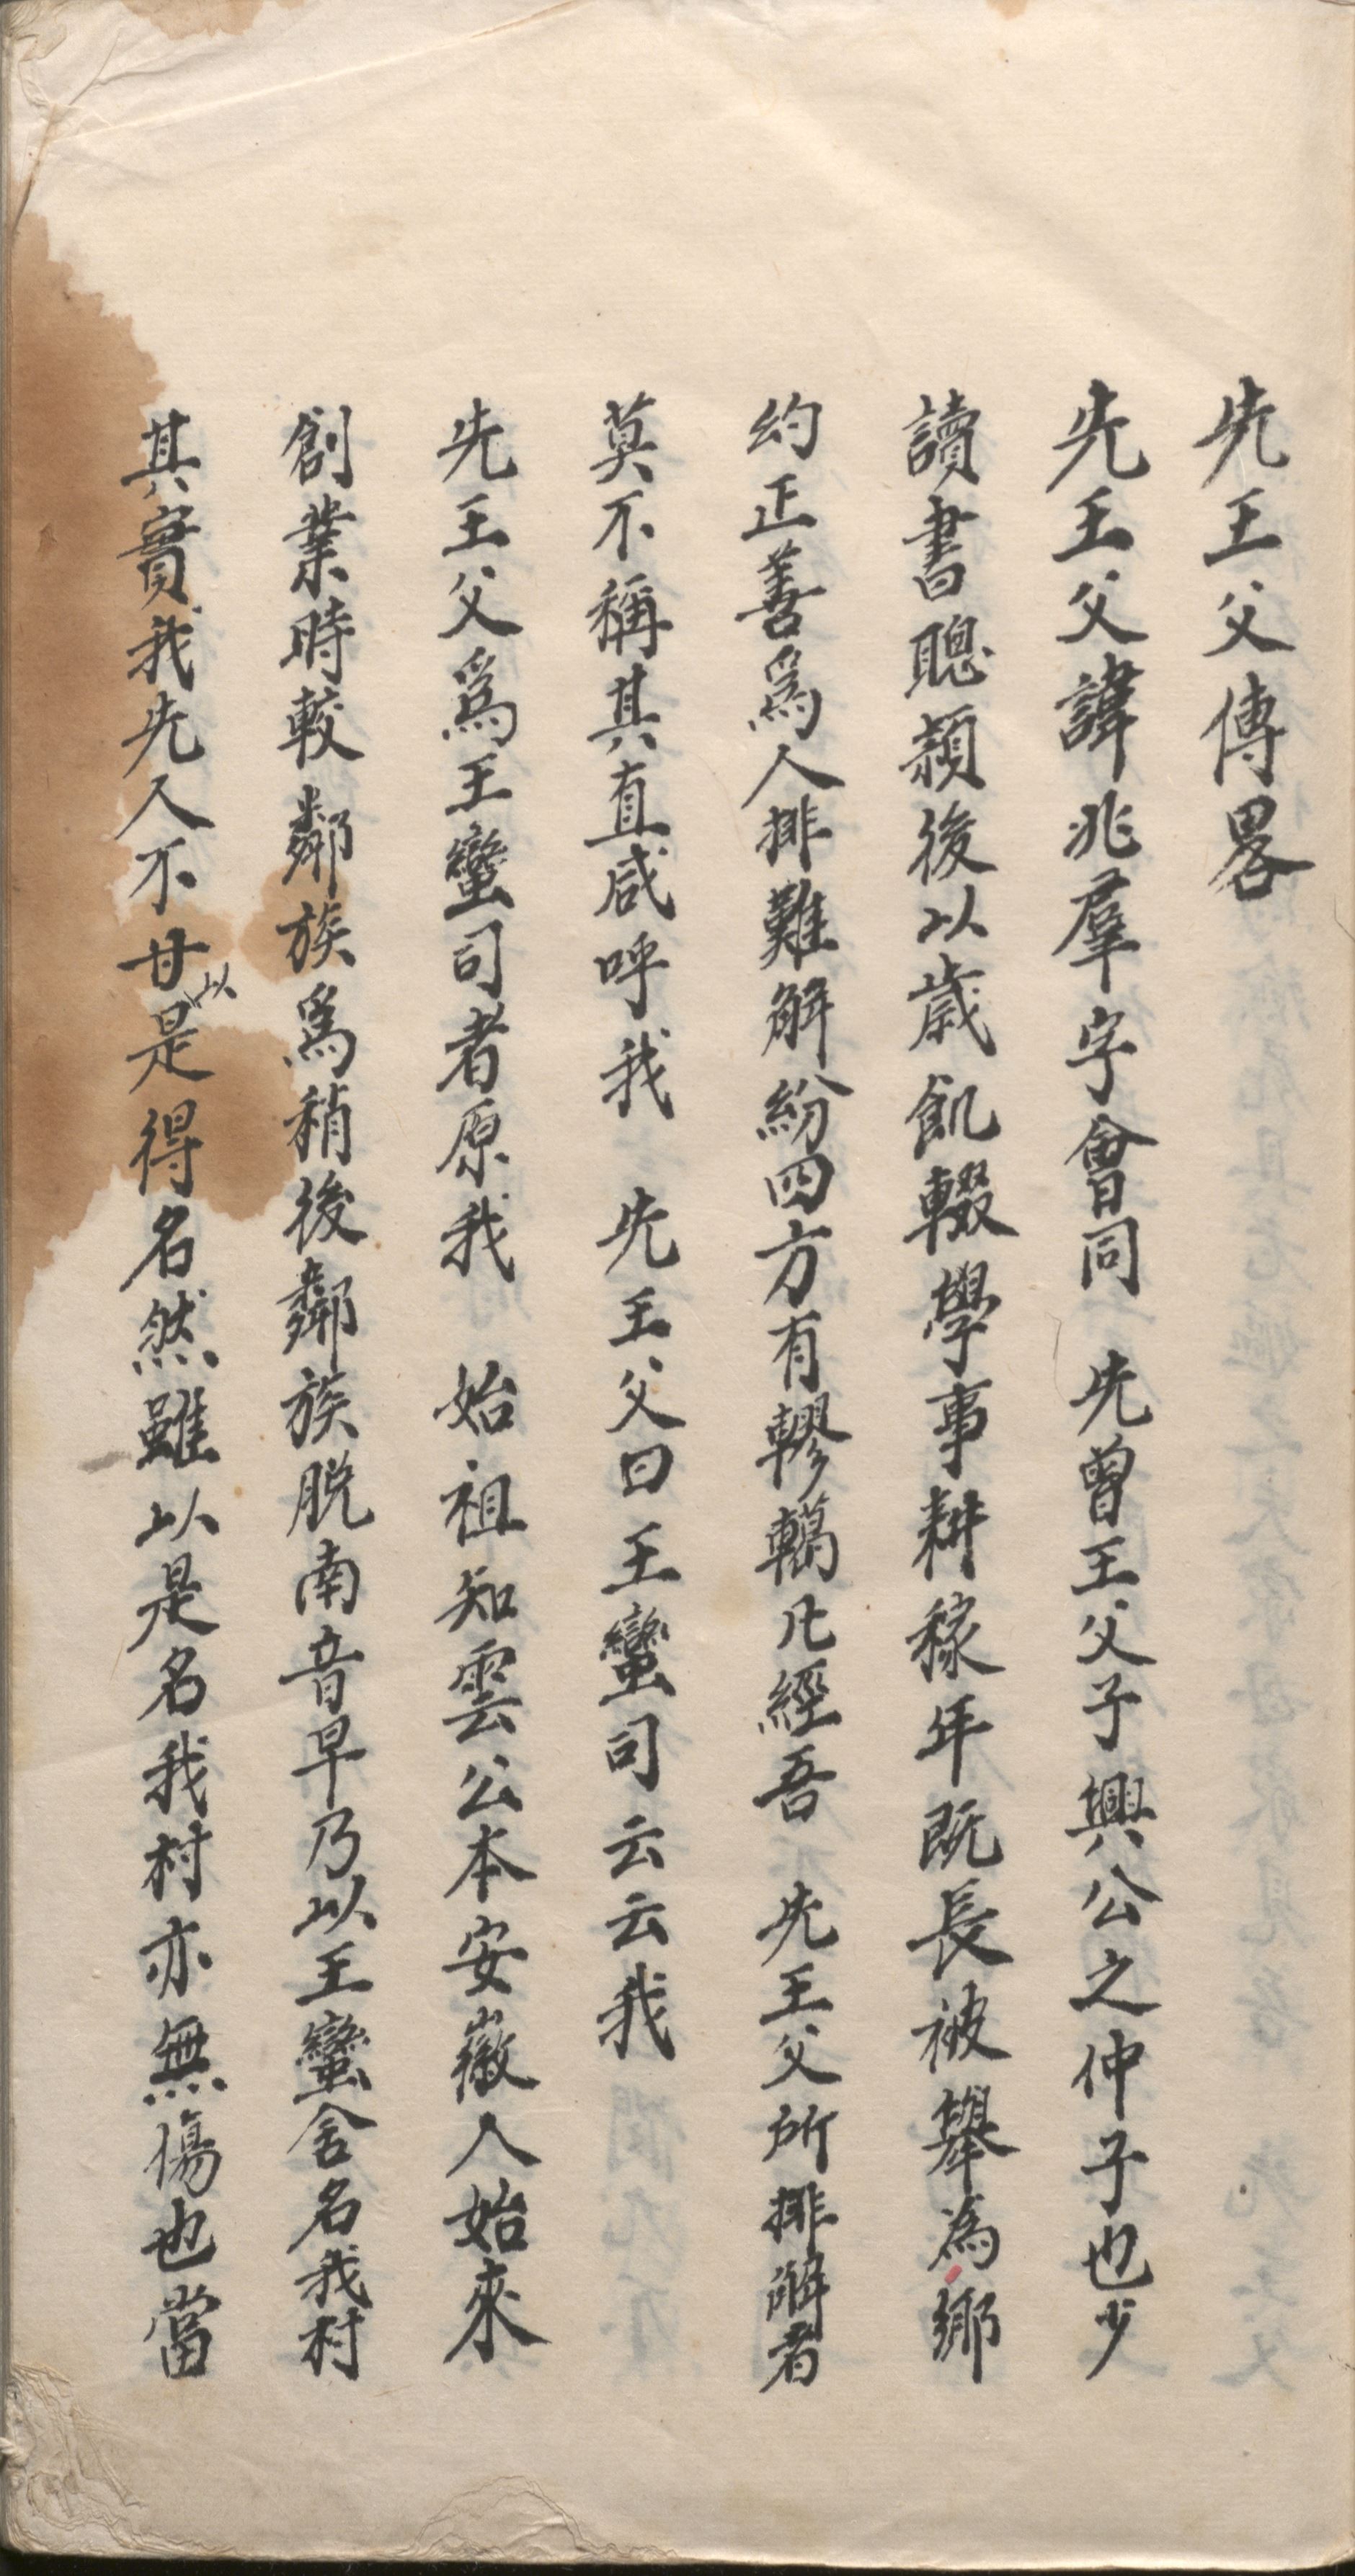 先王父傳畧
先王父諱兆羣字會同　先曾王父子興公之仲子也少
讀書聰穎後以歲飢輟學事耕稼年既長被舉為鄉
約正善爲人排難解紛四方有轇轕凡經吾　先王父所排解者
莫不稱其直咸呼我　先王父曰王蠻司云云我
先王父爲王蠻司者原我　始祖知雲公本安徽人始來
創業時較鄰族爲稍後鄰族脫南音早乃以王蠻舍名我村
其實我先人不甘以是得名然雖以是名我村亦無傷也當